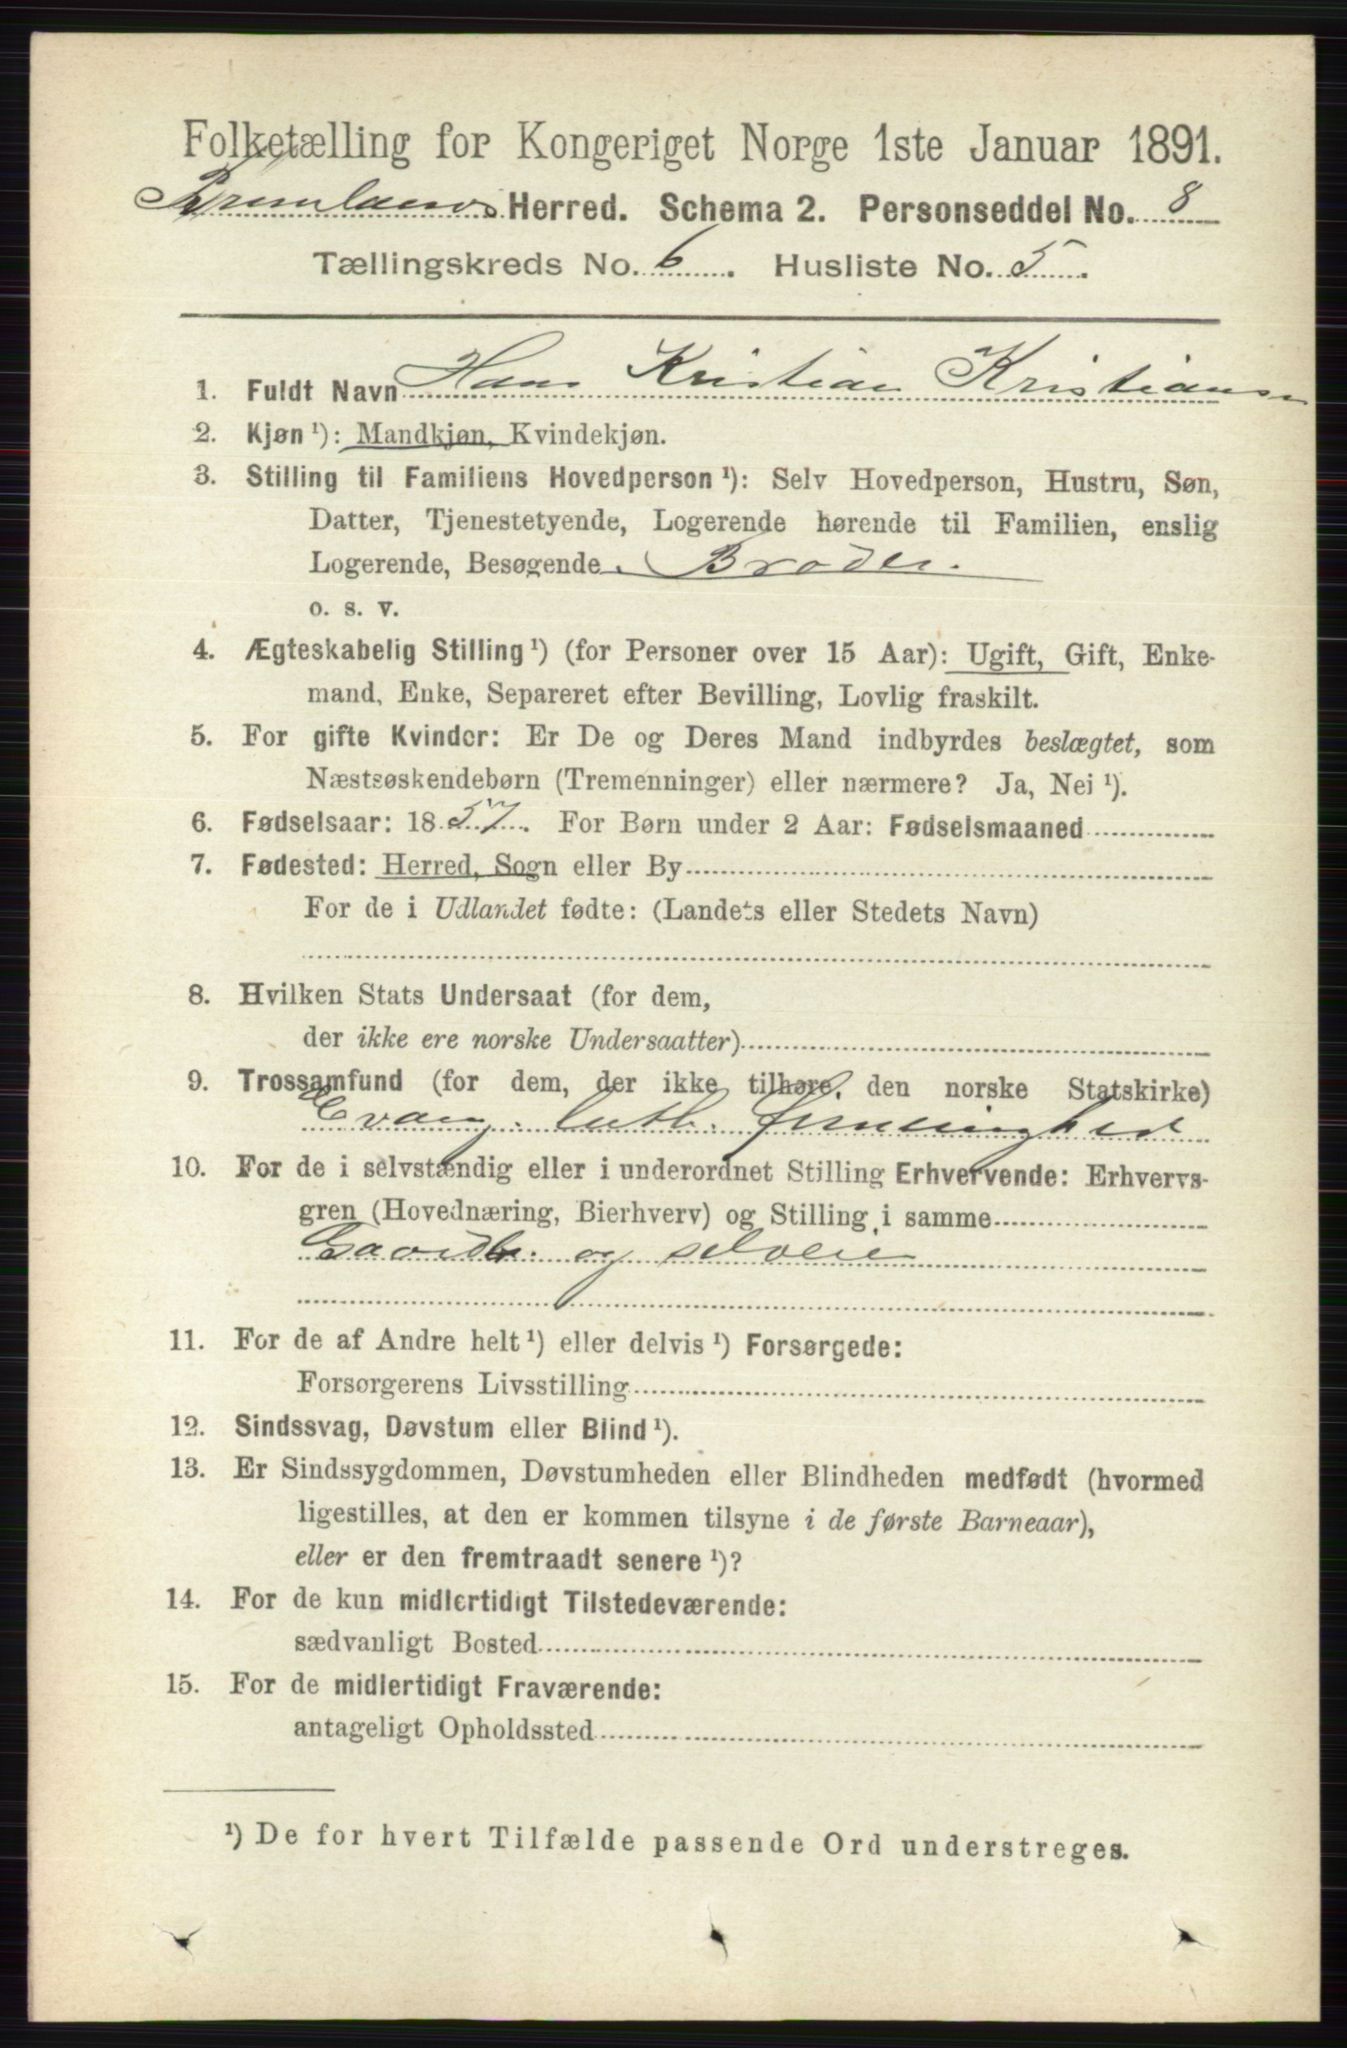 Folketælling for Kongeriget Norge 1ste Januar 1891.
Brunlanes Herred. Schema 2. Personseddel No. 8
Tællingskreds No. 6. Husliste No. 5.
1. Fuldt Navn Hans Kristian Kristiansen
2. Kjøn ¹): Mandkjøn, Kvindekjøn.
3. Stilling til Familiens Hovedperson ¹): Selv Hovedperson, Hustru, Søn,
Datter, Tjenestetyende, Logerende hørende til Familien, enslig
Logerende, Besøgende. Broder.
o. s. v.
4. Ægteskabelig Stilling ¹) (for Personer over 15 Aar): Ugift, Gift, Enke-
mand, Enke, Separeret efter Bevilling, Lovlig fraskilt.
5. For gifte Kvinder: Er De og Deres Mand indbyrdes beslægtet, som
Næstsøskendebørn (Tremenninger) eller nærmere? Ja, Nei ¹).
6. Fødselsaar: 1857. For Børn under 2 Aar: Fødselsmaaned
7. Fødested: Herred, Sogn eller By
For de i Udlandet fødte: (Landets eller Stedets Navn)
8. Hvilken Stats Undersaat (for dem,
der ikke ere norske Undersaatter)
9. Trossamfund (for dem, der ikke tilhøre den norske Statskirke)
Evang. luth. frimenighed
10. For de i selvstændig eller i underordnet Stilling Erhvervende: Erhvervs-
gren (Hovednæring, Bierhverv) og Stilling i samme
Gaardbr. og selveier
11. For de af Andre helt ¹) eller delvis ¹) Forsørgede:
Forsørgerens Livsstilling
12. Sindssvag, Døvstum eller Blind ¹).
13. Er Sindssygdommen, Døvstumheden eller Blindheden medfødt (hvormed
ligestilles, at den er kommen tilsyne i de første Barneaar),
eller er den fremtraadt senere ¹)?
14. For de kun midlertidigt Tilstedeværende:
sædvanligt Bosted
15. For de midlertidigt Fraværende:
antageligt Opholdssted
¹) De for hvert Tilfælde passende Ord understreges.